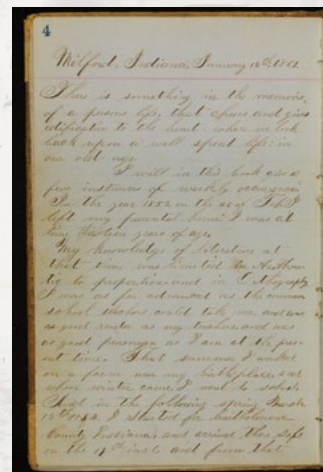 4
Milford, Indiana, January 18th, 1861.
There is something in the memoirs
of a persons life, that cheers and gives
edification to the heart when we look
back upon a well spent life; in
our old age
I will in this book give a
few instances of weekly occurrence
In the year 1852 on the 20 of Feb I
left my parental home. I was at
thirteen years of age.
My knowledge of literature at
that time was limited. In Arithme
tic to proportion and in Orthography
I was as far advanced as the common
school teachers could take me, and was
as good reader as my teacher, and was
as good penman as I am at the pres
ent time. That summer I worked
on a farm near my birthplace, and
when winter came I went to school
in the following spring March
15th I started for Bartholomew
County Indiana and arrived there safe
on the 18th inst. and from that